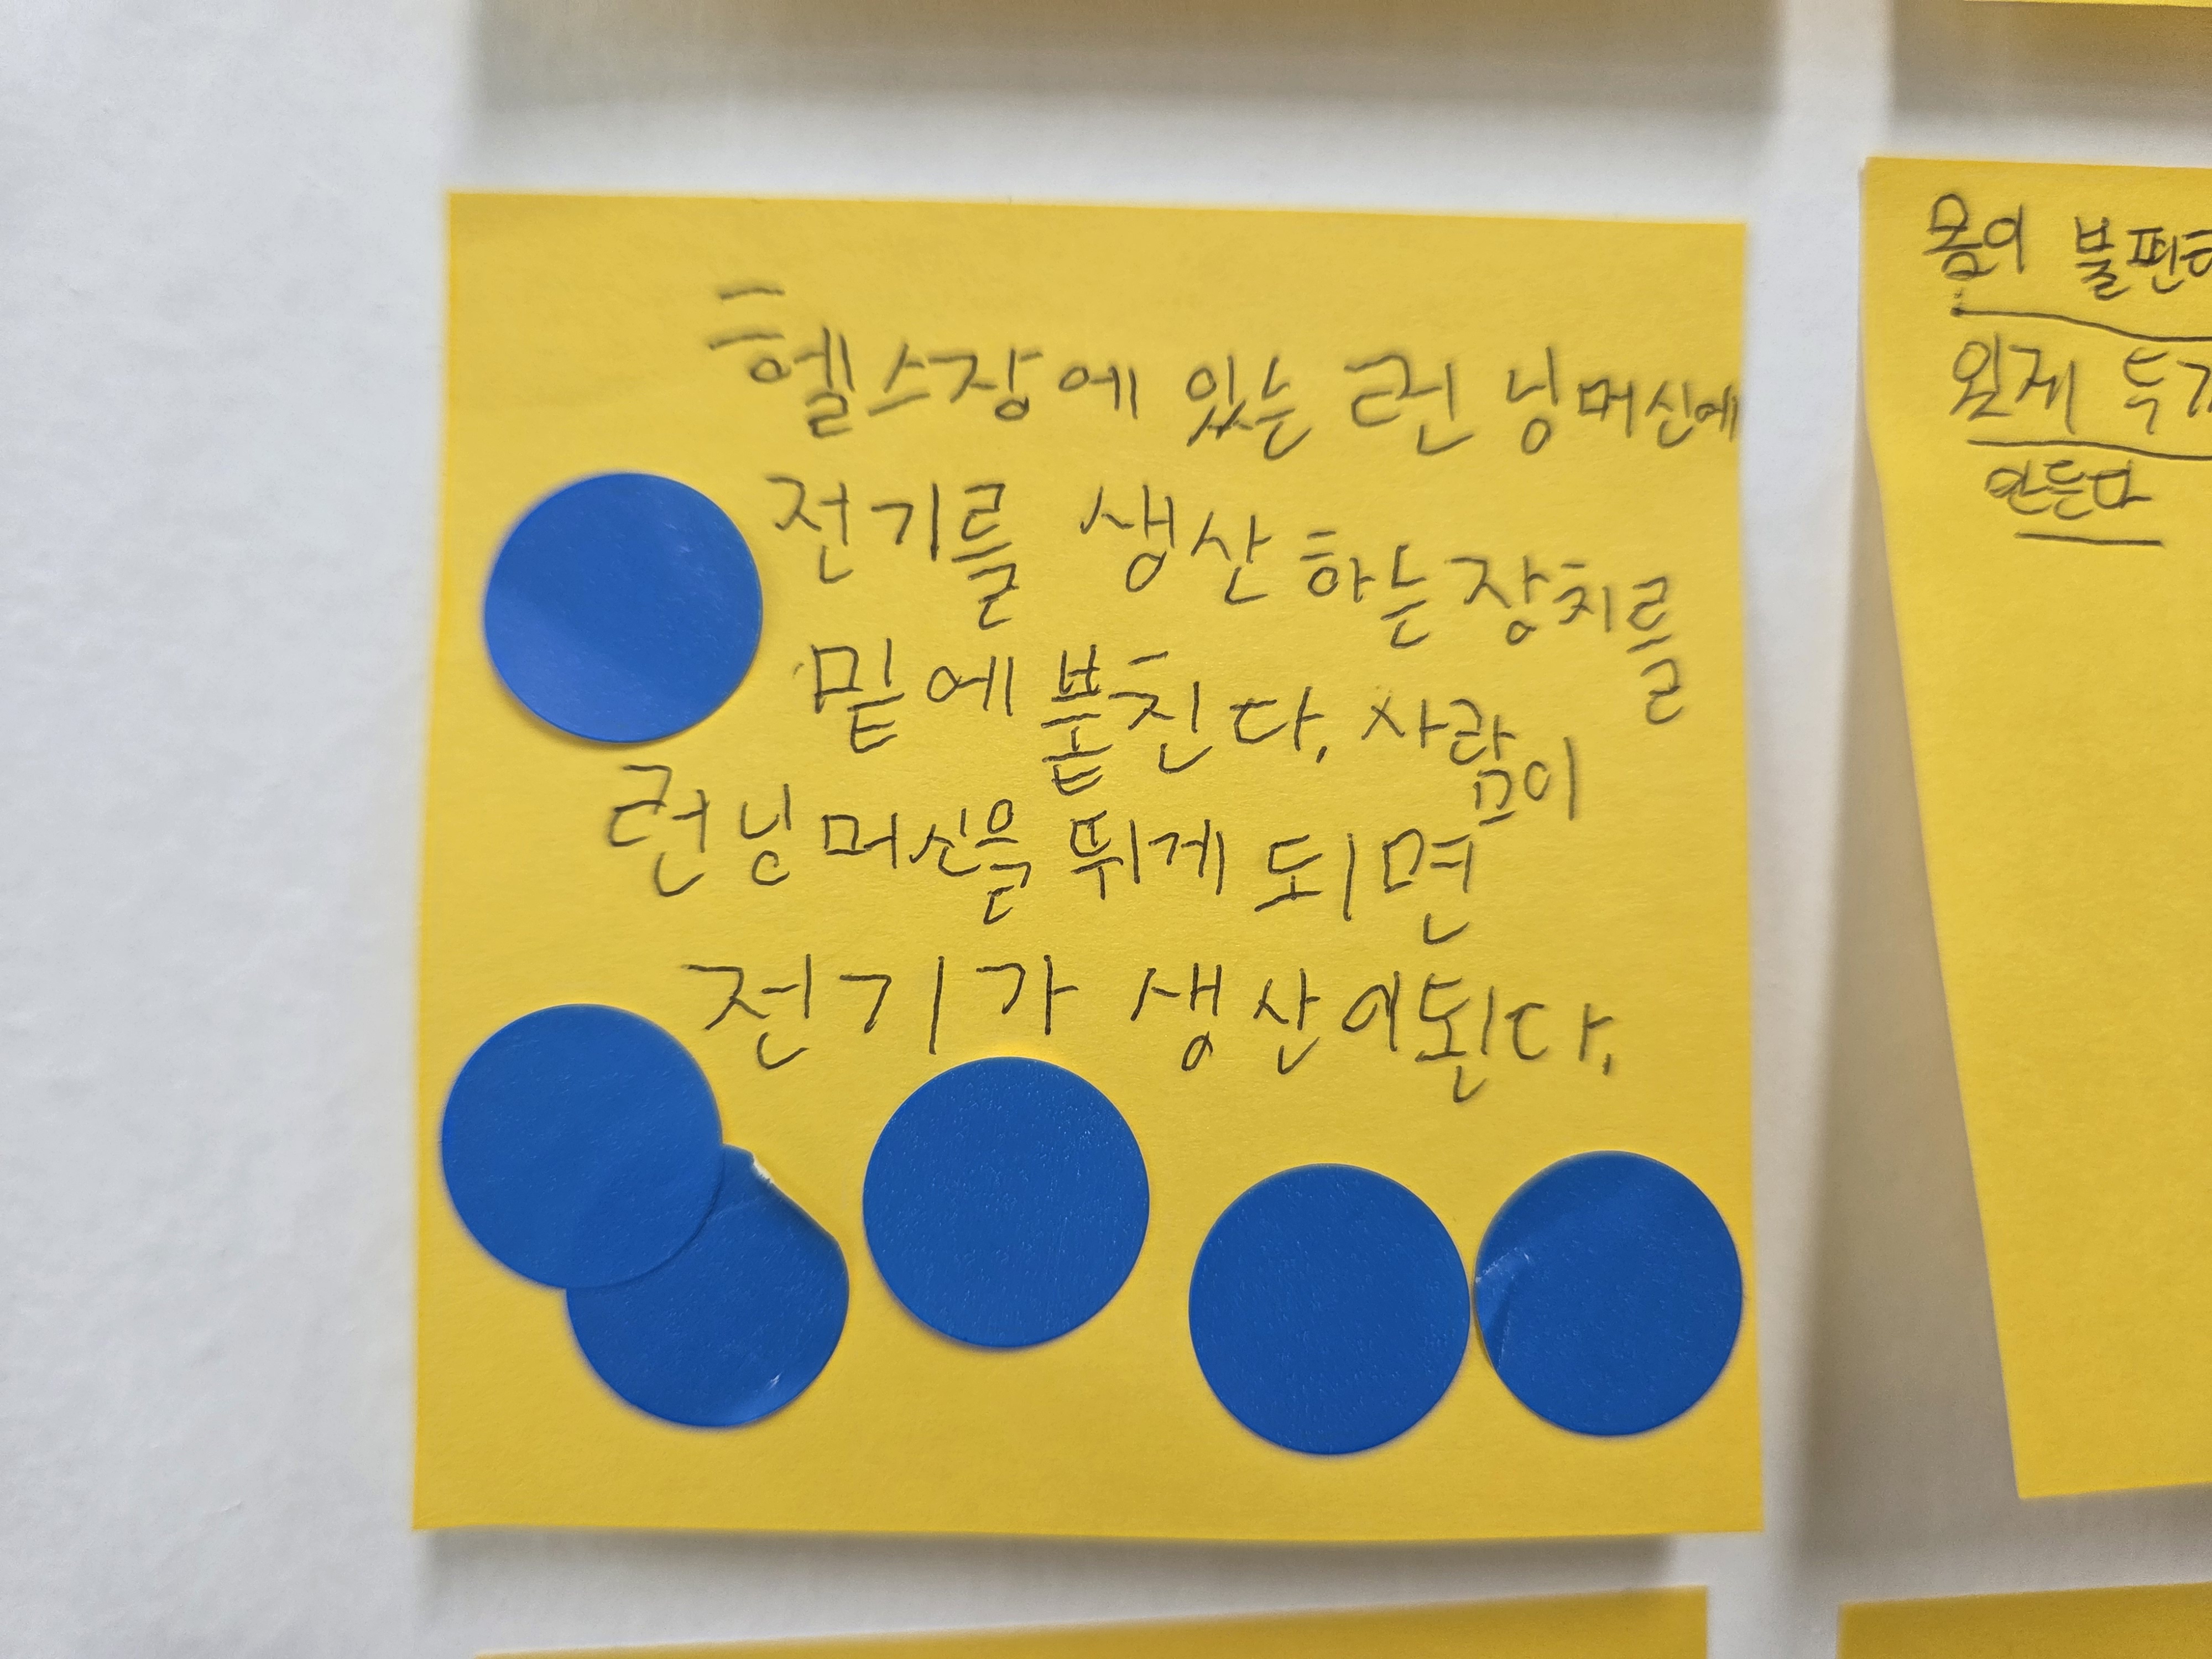 헬스장에 있는 런닝머신에
전기를 생산하는장치를
밑에 붙친다. 사람이
런닝머신을 뛰게 되면
전기가 생산이된다.
몸의
만든다